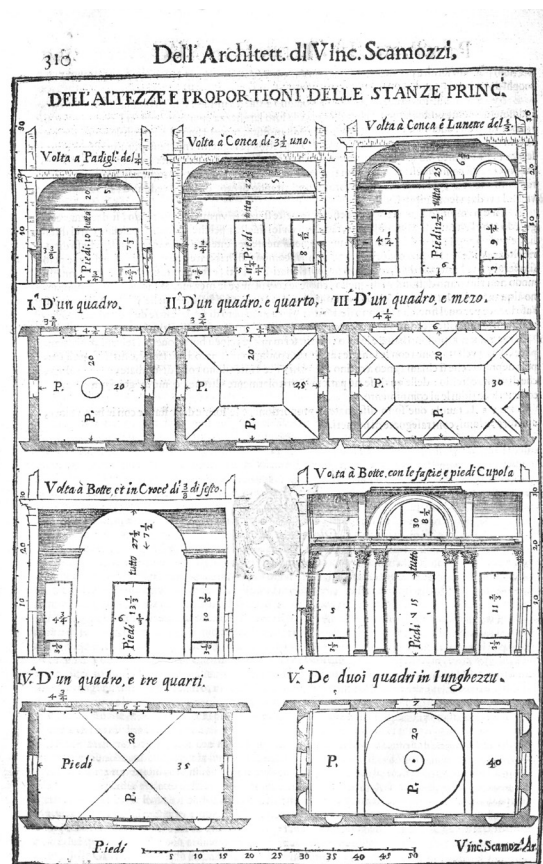 310 Dell'Architett. di Vinc. Scamozzi,
DELL'ALTEZZE E PROPORTIONI DELLE STANZE PRINC.
Volta a Padigl. del
Volta à Conca de 3 1/2 uno.
Volta à Conca é Lunette del
20
5
tutta
Piedi 10
22
5
tutta
Piedi
25
tutta
Piedi 12 1/2
I.ª D'un quadro.
II.ª D'un quadro. e quarto,
III.ª D'un quadro, e mezo.
20
P. 20
P.
20
P. 25
P.
20
P. 30
P.
Volta à Botte, et in Croce di di sesto.
Volta à Botte, con le fastie, e piedi Cupola
tutto 27 1/2
7 1/2
Piedi 13 1/3
10
30
8 1/2
tutto
Piedi 15
5
IV.ª D'un quadro, e tre quarti.
V.ª De duoi quadri in lunghezzu.
20
Piedi 35
P.
7
20
P. 40
P.
Piedi 5 10 15 20 25 30 35 40 45 50
Vinc. Scamoz. Ar.